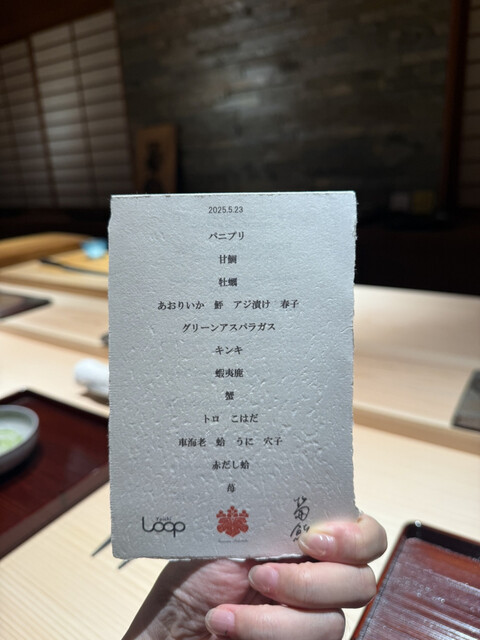 2025.5.23
パニプリ
甘鯛
牡蠣
あおりいか 鮃 アジ漬け 春子
グリーンアスパラガス
キンキ
蝦夷鹿
蟹
トロ こはだ
車海老 蛤 うに 穴子
赤だし蛤
苺
Loop